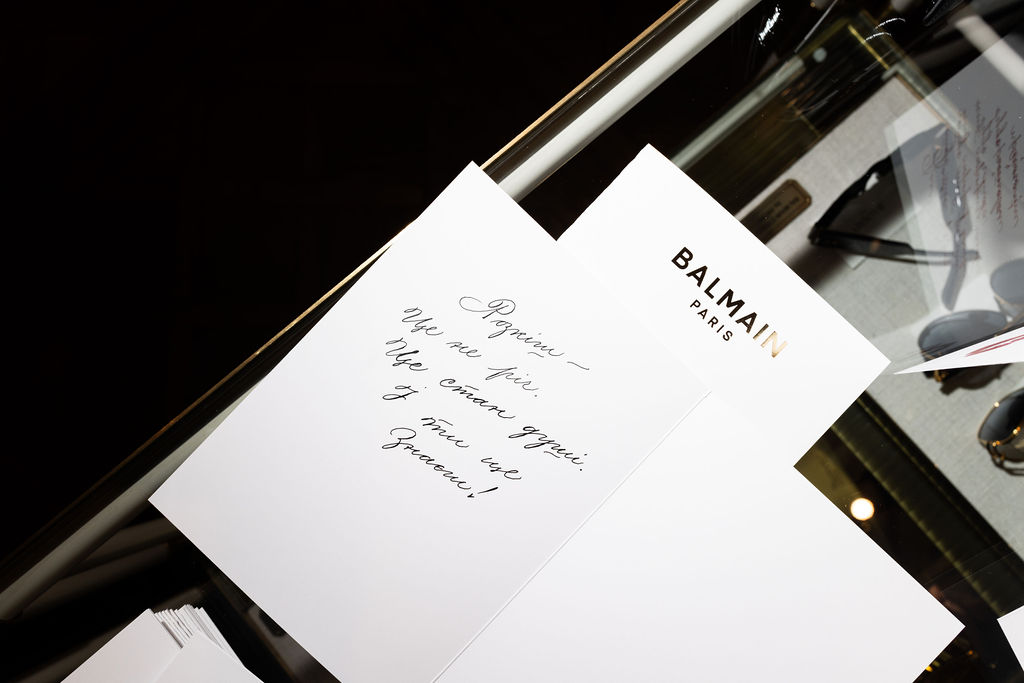 Розкіш —
Це не річ.
Це стан душі.
І ти це
Знаєш!
BALMAIN
PARIS